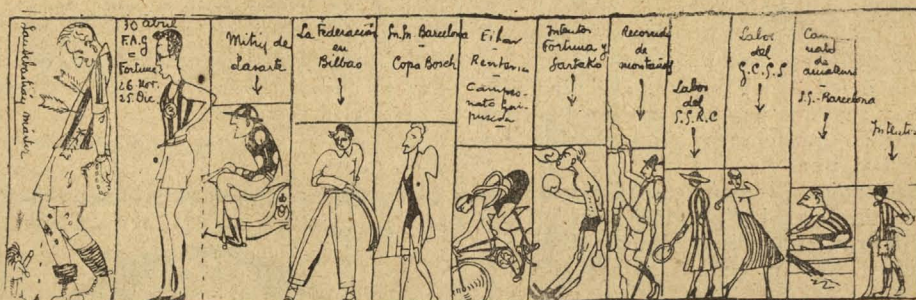 San Sebastián máster
30 abril
F.A.G
=
Fortuna
26 Nov.
25 Dic.
Mitin de
Lasarte
La Federación
en
Bilbao
Sn. Sn. Barcelona
-
Copa Bosch
Eibar
-
Rentería
-
Campeo-
nato Gui-
puscoa
Intentos
Fortuna y
Recorrido
de
montañas
Labor
del
S.S.R.C
Labor
del
G.C.S.S
Cam
nato
de
amateurs
-
S.S.-Barcelona